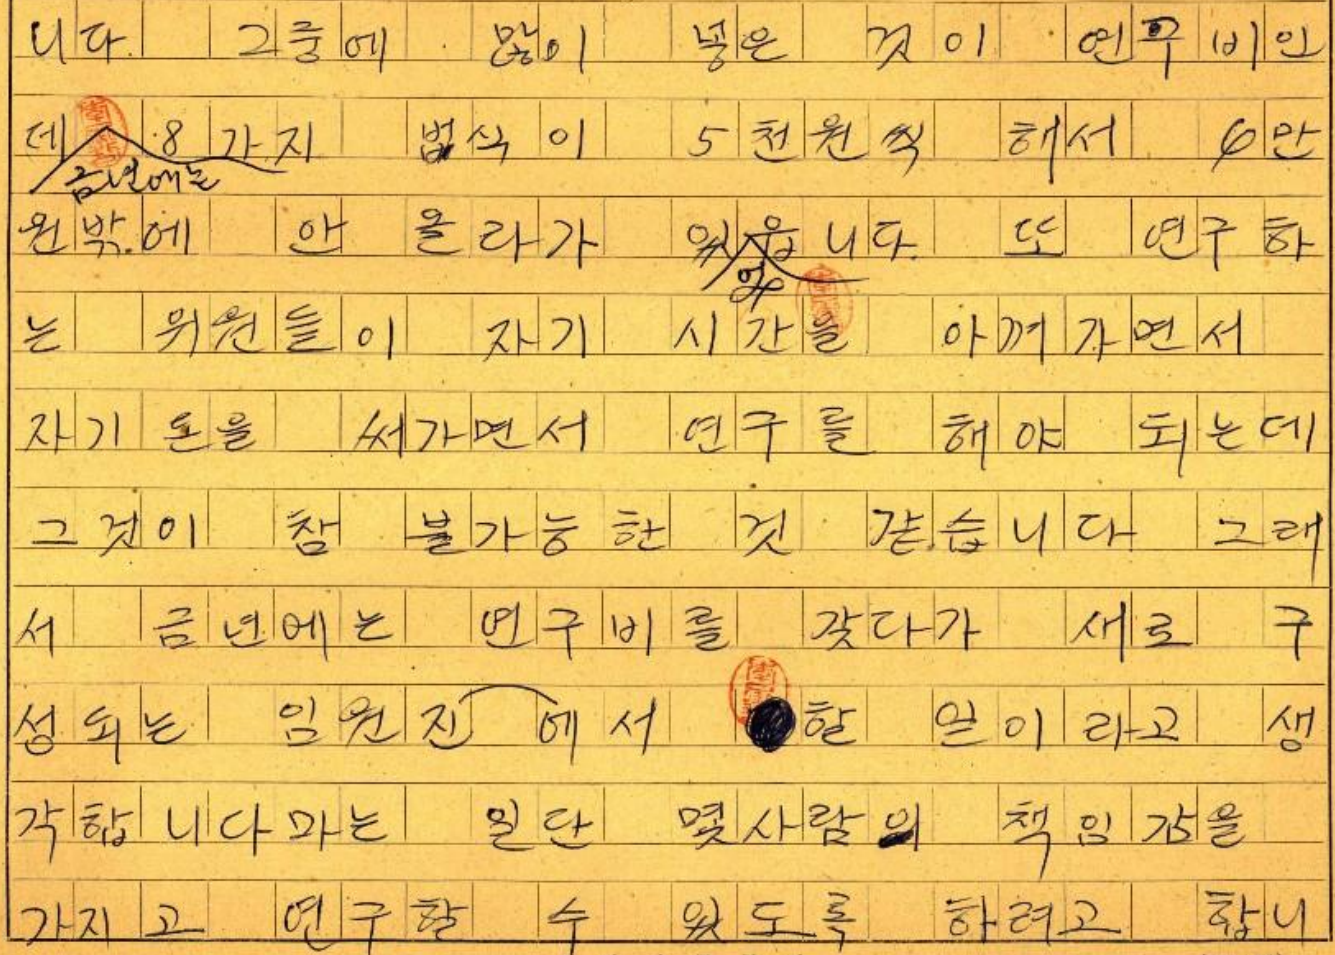 니다. 그중에 많이 넣은 것이 연구비인
데 8가지 법식이 5천원씩 해서 6만
금년에는
원밖.에 안 올라가 있읍니다. 또 연구하
았
는 위원들이 자기 시간을 아껴가면서
자기 돈을 써가면서 연구를 해야 되는데
그것이 참 불가능한 것 같습니다 그래
서 금년에는 연구비를 갖다가 새로 구
성되는 임원진 에서 할 일이라고 생
각합니다마는 일단 몇사람의 책임감을
가지고 연구할 수 있도록 하려고 합니